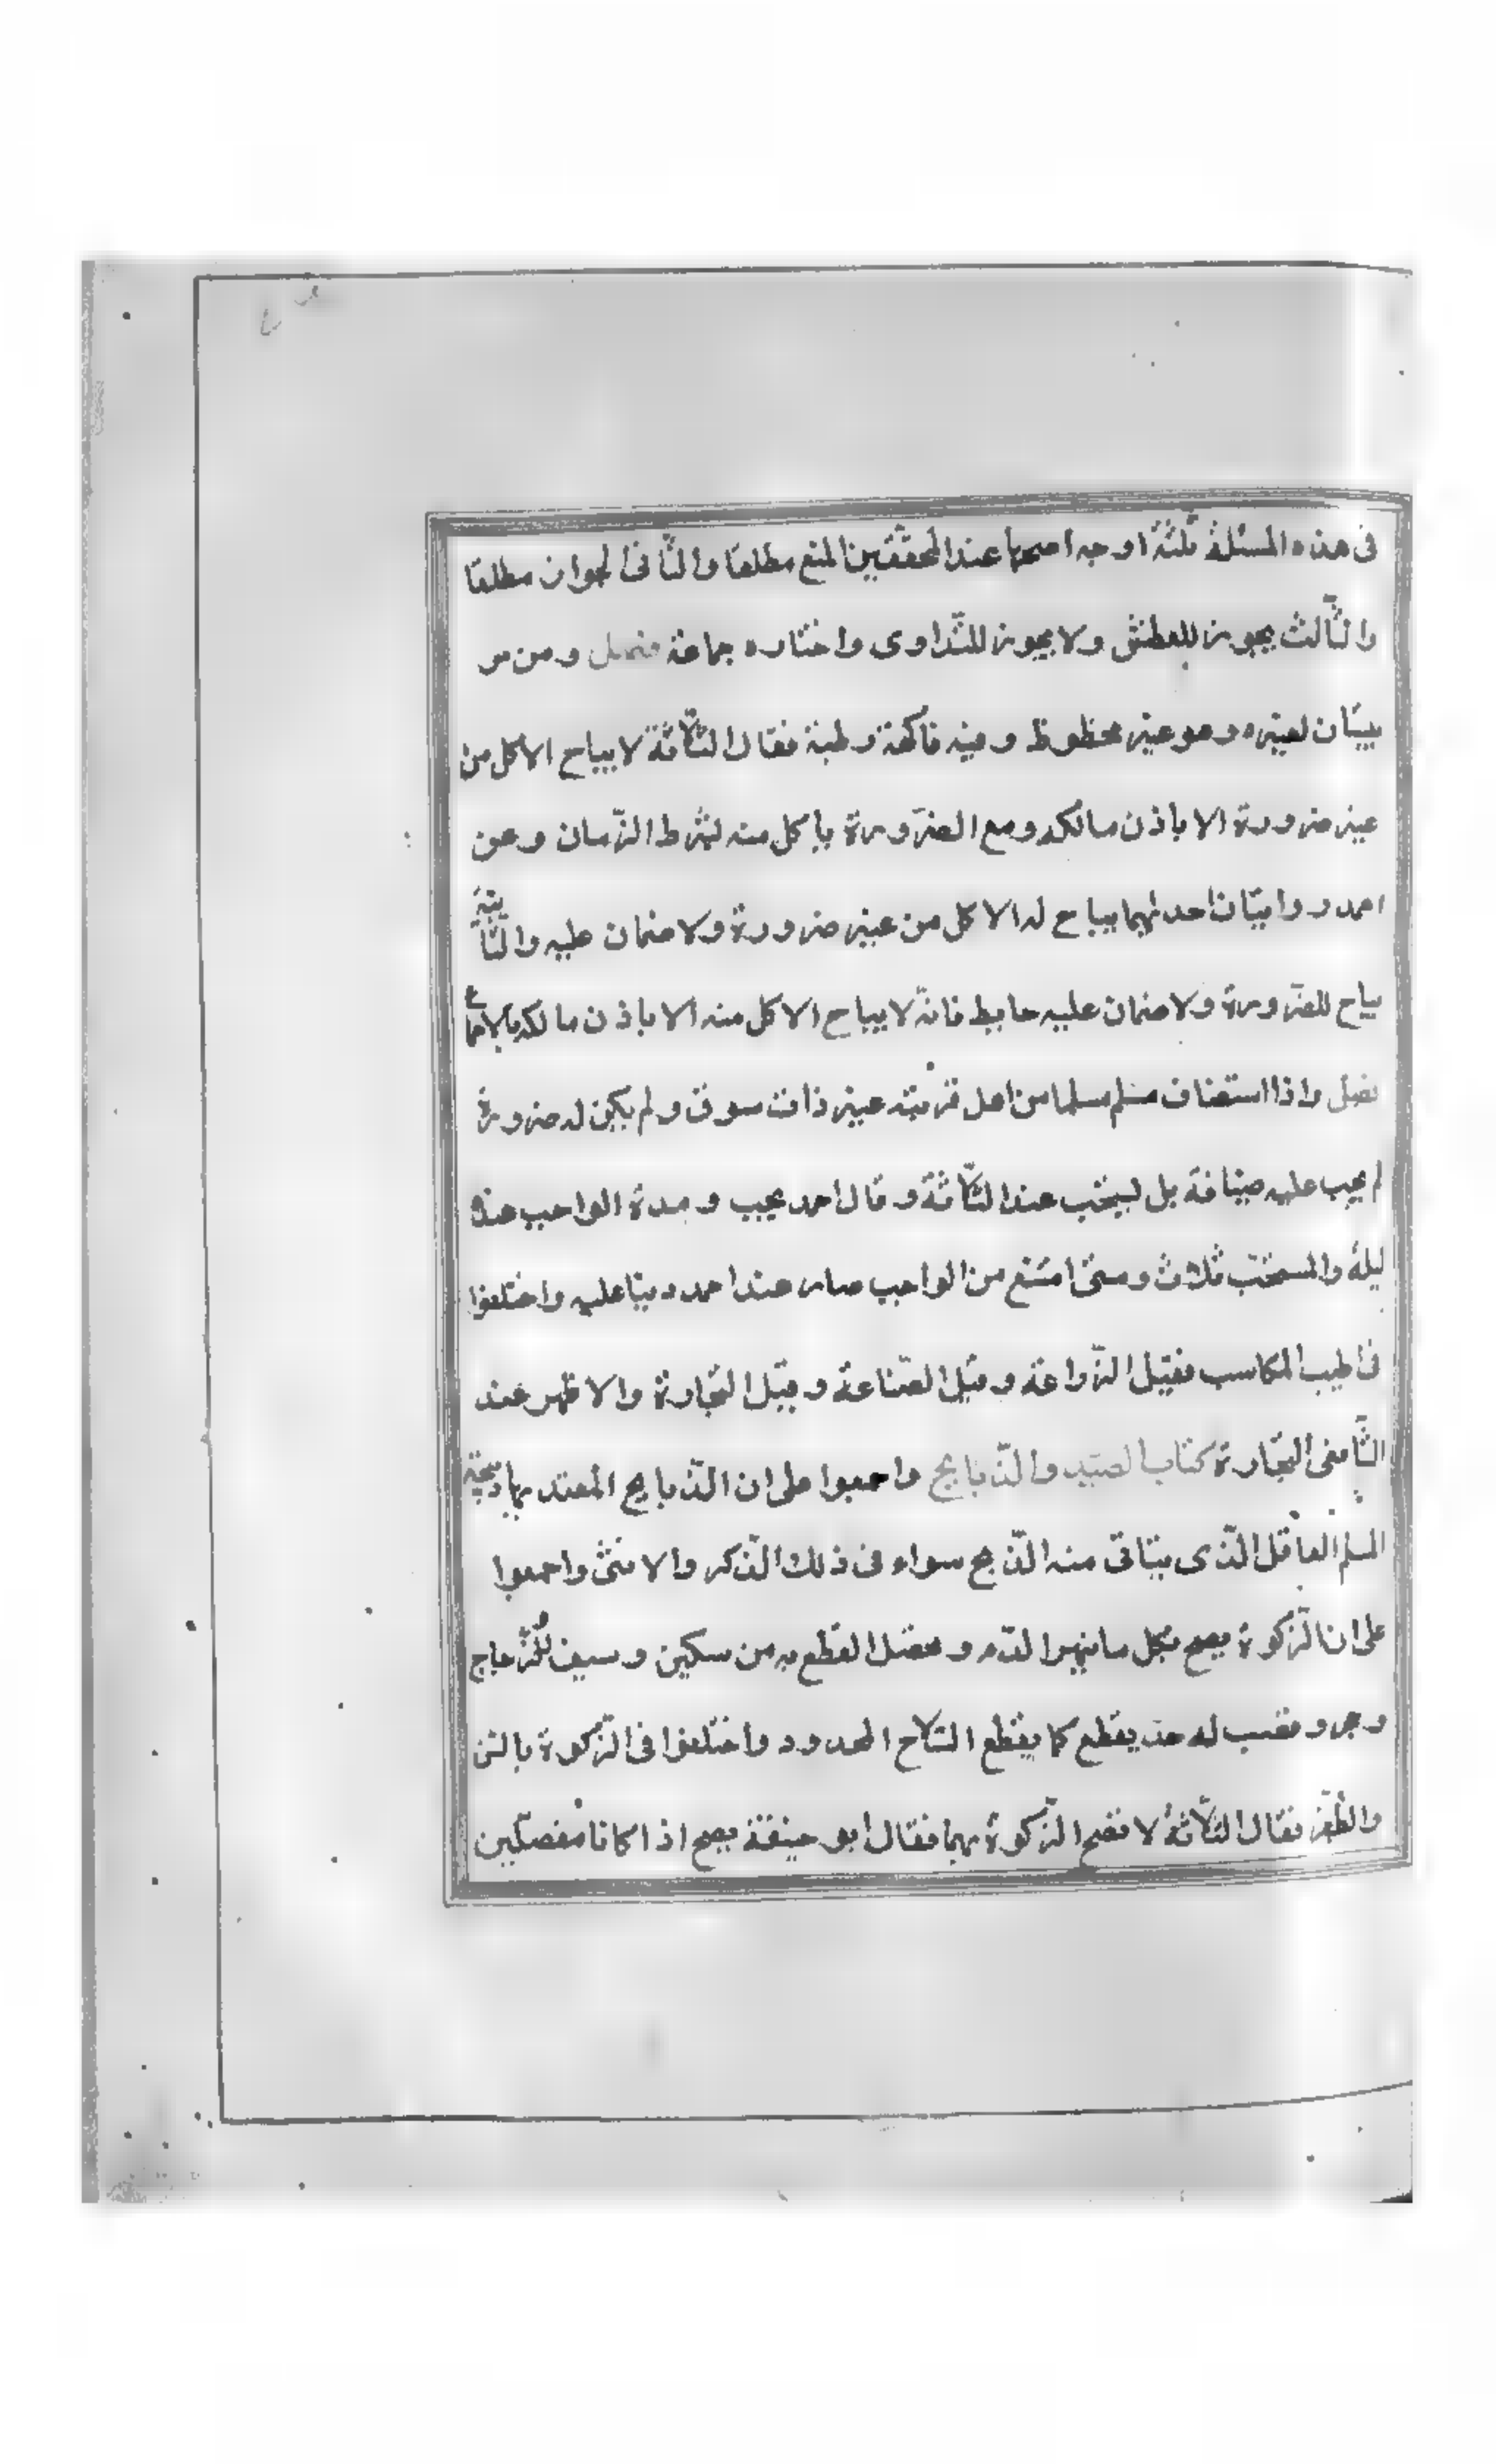 فى هذه المسئلة ثلثة اوجه اصحها عند المحققين المنع مطلقا والثانى الجواز مطلقا
والثالث يجوز للعطش ولا يجوز للتداوى واختاره جماعة فصل ومن مر
ببستان لغيره وهو غير محظوظ وفيه فاكهة رطبة فقال الثلاثة لا يباح الاكل من
غير ضرورة الا باذن مالكه ومع الضرورة ياكل منه بشرط الزمان وعن
احمد روايتان احدیهما يباح له الاكل من غير ضرورة ولا ضمان عليه والثانية
يباح للضرورة ولا ضمان عليه حايط فانه لا يباح الاكل منه الا باذن مالكه بالاجماع
فصل واذا استضاف مسلم مسلما من اهل قرية غير ذات سوق ولم يكن له ضرورة
لم يجب عليه ضيافة بل يستحب عند الثلاثة وقال احمد يجب ومدة الواجب عنده
ليلة والمستحب ثلاث ومتى امتنع من الواجب صار عند احمد دينا عليه واختلفوا
فى اطيب المكاسب فقيل الزراعة وقيل الصناعة وقيل التجارة والاظهر عند
الشافعى التجارة كتاب الصيد والذبايح واجمعوا على ان الذبايح المعتد بها ذبيحة
المسلم العاقل الذى يتاتى منه الذبح سواء فى ذلك الذكر والانثى واجمعوا
على ان الزكوة يصح بكل ما ينهر الدم وحصل القطع به من سكين وسيف وزجاج
وحجر وقصب له حد يقطع كما يقطع السلاح المحدود واختلفوا فى الزكوة بالسن
والظفر فقال الثلاثة لا تصح الزكوة بهما فقال ابو حنيفة يصح اذا كانا منفصلين